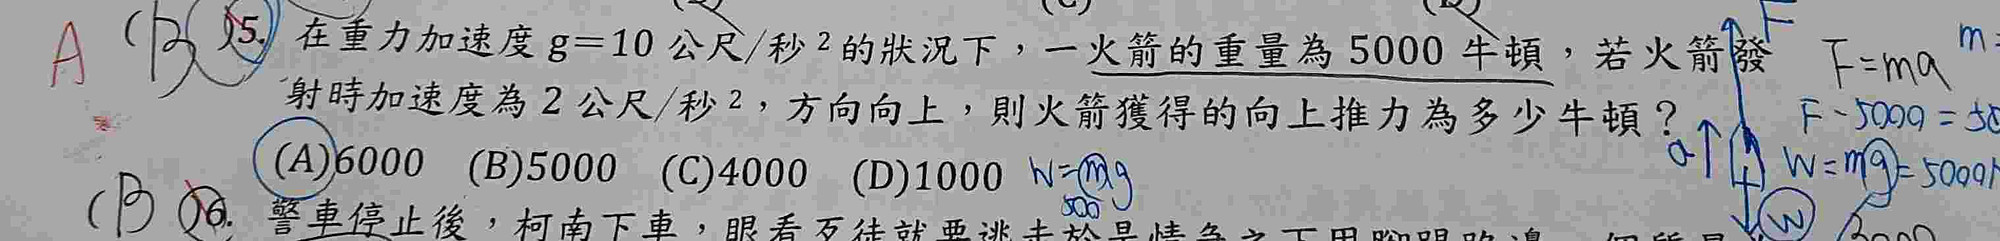 A (B)5. 在重力加速度 g＝10 公尺/秒²的狀況下，一火箭的重量為 5000 牛頓，若火箭發
射時加速度為 2 公尺/秒²，方向向上，則火箭獲得的向上推力為多少牛頓？
(A)6000 (B)5000 (C)4000 (D)1000 W=mg
500
(B)6. 警車停止後，柯南下車，眼看歹徒就要逃走
F
F=ma
F-5000=
a
W=mg=5000
W